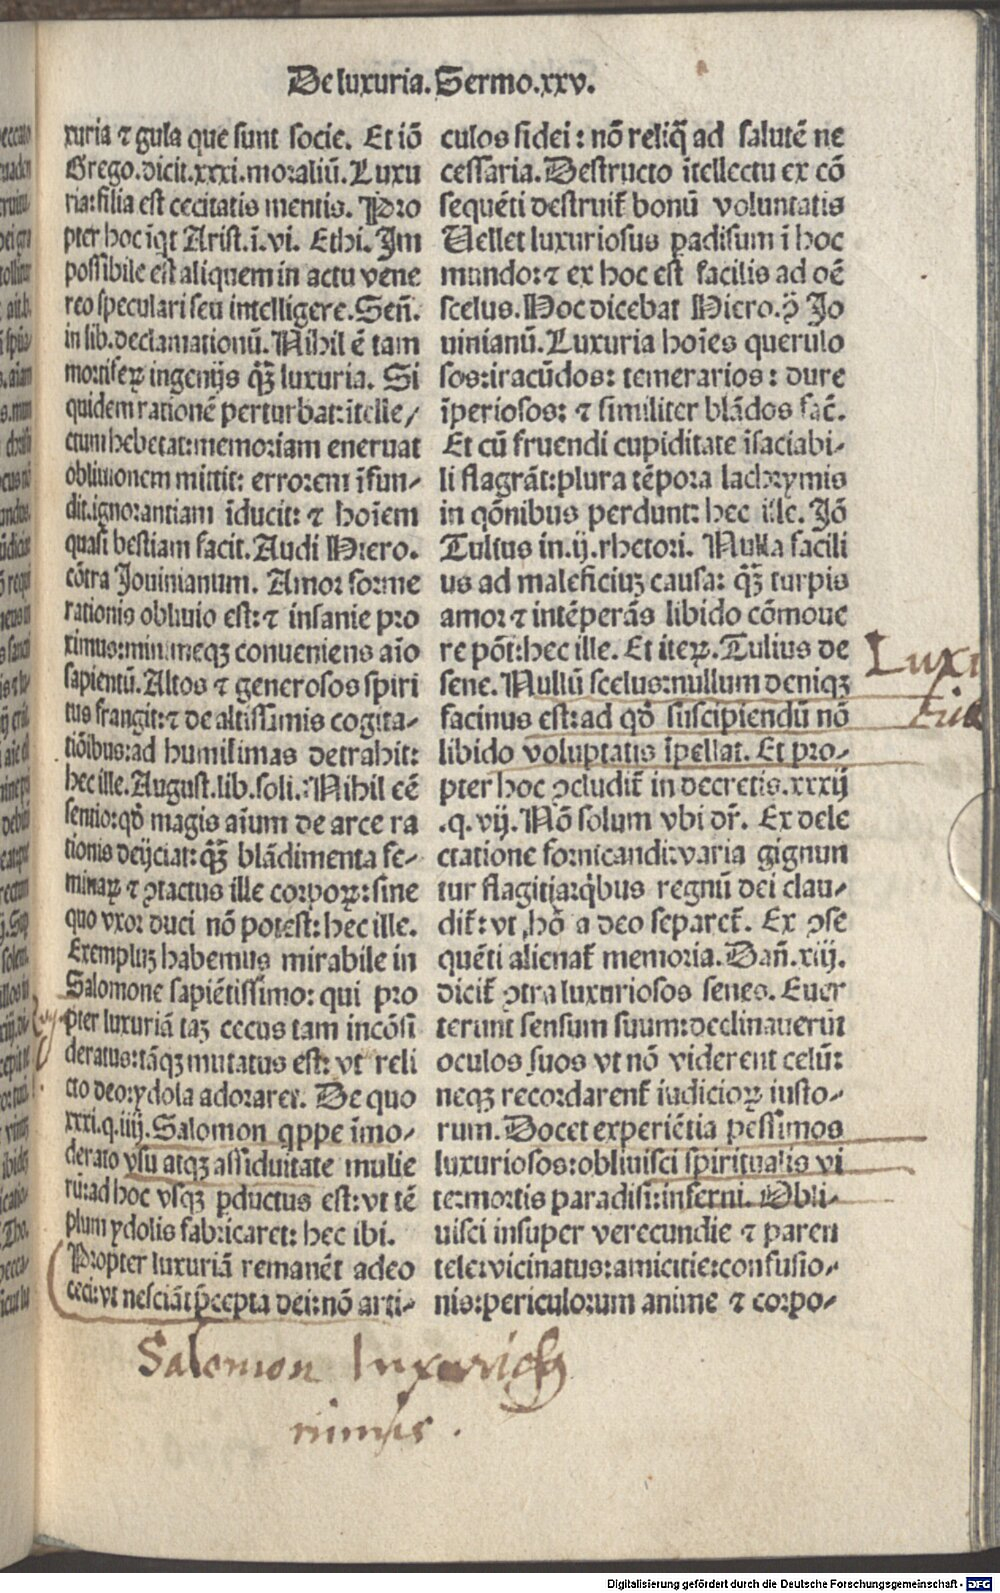 De luxuria. Sermo. xxv.
xuria ⁊ gula que sunt socie. Et iõ
Grego. dicit. xxxi. moraliũ. Luxu
ria: filia est cecitatis mentis. Pro
pter hoc īqt Arist. ī. vi. Ethi. Im
possibile est aliquem in actu vene
reo speculari seu intelligere. Señ.
in lib. declamationũ. Nihil ē tam
mortiferꝝ ingenijs qꝫ̃ luxuria. Si
quidem rationẽ perturbat: ītelle/
ctum hebetat: memoriam eneruat
obliuionem mittit: errorem īfun-
dit. ignorantiam īducit: ⁊ hoīem
quasi bestiam facit. Audi Hiero.
cõtra Jouinianum. Amor forme
rationis obliuio est: ⁊ insanie pro
ximus: minimeqꝫ conueniens aīo
sapientũ. Altos ⁊ generosos spiri
tus frangit: ⁊ de altissimis cogita-
tiõibus: ad humilimas detrahit:
hec ille. August. lib. soli. Nihil eẽ
sentio: qđ magis aīum de arce ra
tionis deijciat: qꝫ̃ blãdimenta fe-
minaꝝ ⁊ ꝯtactus ille corpoꝝ: sine
quo vxor duci nõ potest: hec ille.
Exempluꝫ habemus mirabile in
Salomone sapiẽtissimo: qui pro
pter luxuriã taꝫ cecus tam incõsi
deratus: tãqꝫ mutatus est: vt reli
cto deo: ydola adoraret. De quo
xxxi. q. iiij. Salomon qppe īmo-
derato vsu atqꝫ assiduitate mulie
rũ: ad hoc vsqꝫ ꝑductus est: vt tẽ
plum ydolis fabricaret: hec ibi.
Propter luxuriã remanẽt adeo
ceci: vt nesciãt p̄cepta dei: nõ arti-
culos fidei: nõ reliq̃ ad salutẽ ne
cessaria. Destructo ītellectu ex cõ
sequẽti destruit᷑ bonũ voluntatis
Vellet luxuriosus ꝑadisum ī hoc
mundo: ⁊ ex hoc est facilis ad oẽ
scelus. Hoc dicebat Hiero. ꝯ̃ Jo
uinianũ. Luxuria hoīes querulo
sos: iracũdos: temerarios: dure
īperiosos: ⁊ similiter blãdos fac̃.
Et cũ fruendi cupiditate īsaciabi-
li flagrãt: plura tẽpora lachrymis
in qõnibus perdunt: hec ille. Jõ
Tulius in. ij. rhetori. Nulla facili
us ad maleficiuꝫ causa: qꝫ̃ turpis
amor ⁊ intẽperãs libido cõmoue
re põt: hec ille. Et iteꝝ. Tulius de
sene. Nullũ scelus: nullum deniqꝫ
facinus est: ad qđ suscipiendũ nõ
libido voluptatis īpellat. Et pro-
pter hoc ꝯcludit᷑ in decretis. xxxij
.q. vij. Nõ solum vbi dr̃. Ex dele
ctatione fornicandi: varia gignun
tur flagitia: qͥbus regnũ dei clau-
dit᷑: vt hõ a deo separet᷑. Ex ꝯse
quẽti alienat᷑ memoria. Dañ. xiij.
dicit᷑ ꝯtra luxuriosos senes. Euer
terunt sensum suum: declinauerũt
oculos suos vt nõ viderent celũ:
neqꝫ recordarent᷑ iudicioꝝ iusto-
rum. Docet experiẽtia pessimos
luxuriosos: obliuisci spiritualis vi
te: mortis paradisi: inferni. Obli-
uisci insuper verecundie ⁊ paren
tele: vicinatus: amicitie: confusio-
nis: periculorum anime ⁊ corpo-
Luxu
Salomon luxurios
nimis.
Digitalisierung gefördert durch die Deutsche Forschungsgemeinschaft - DFG